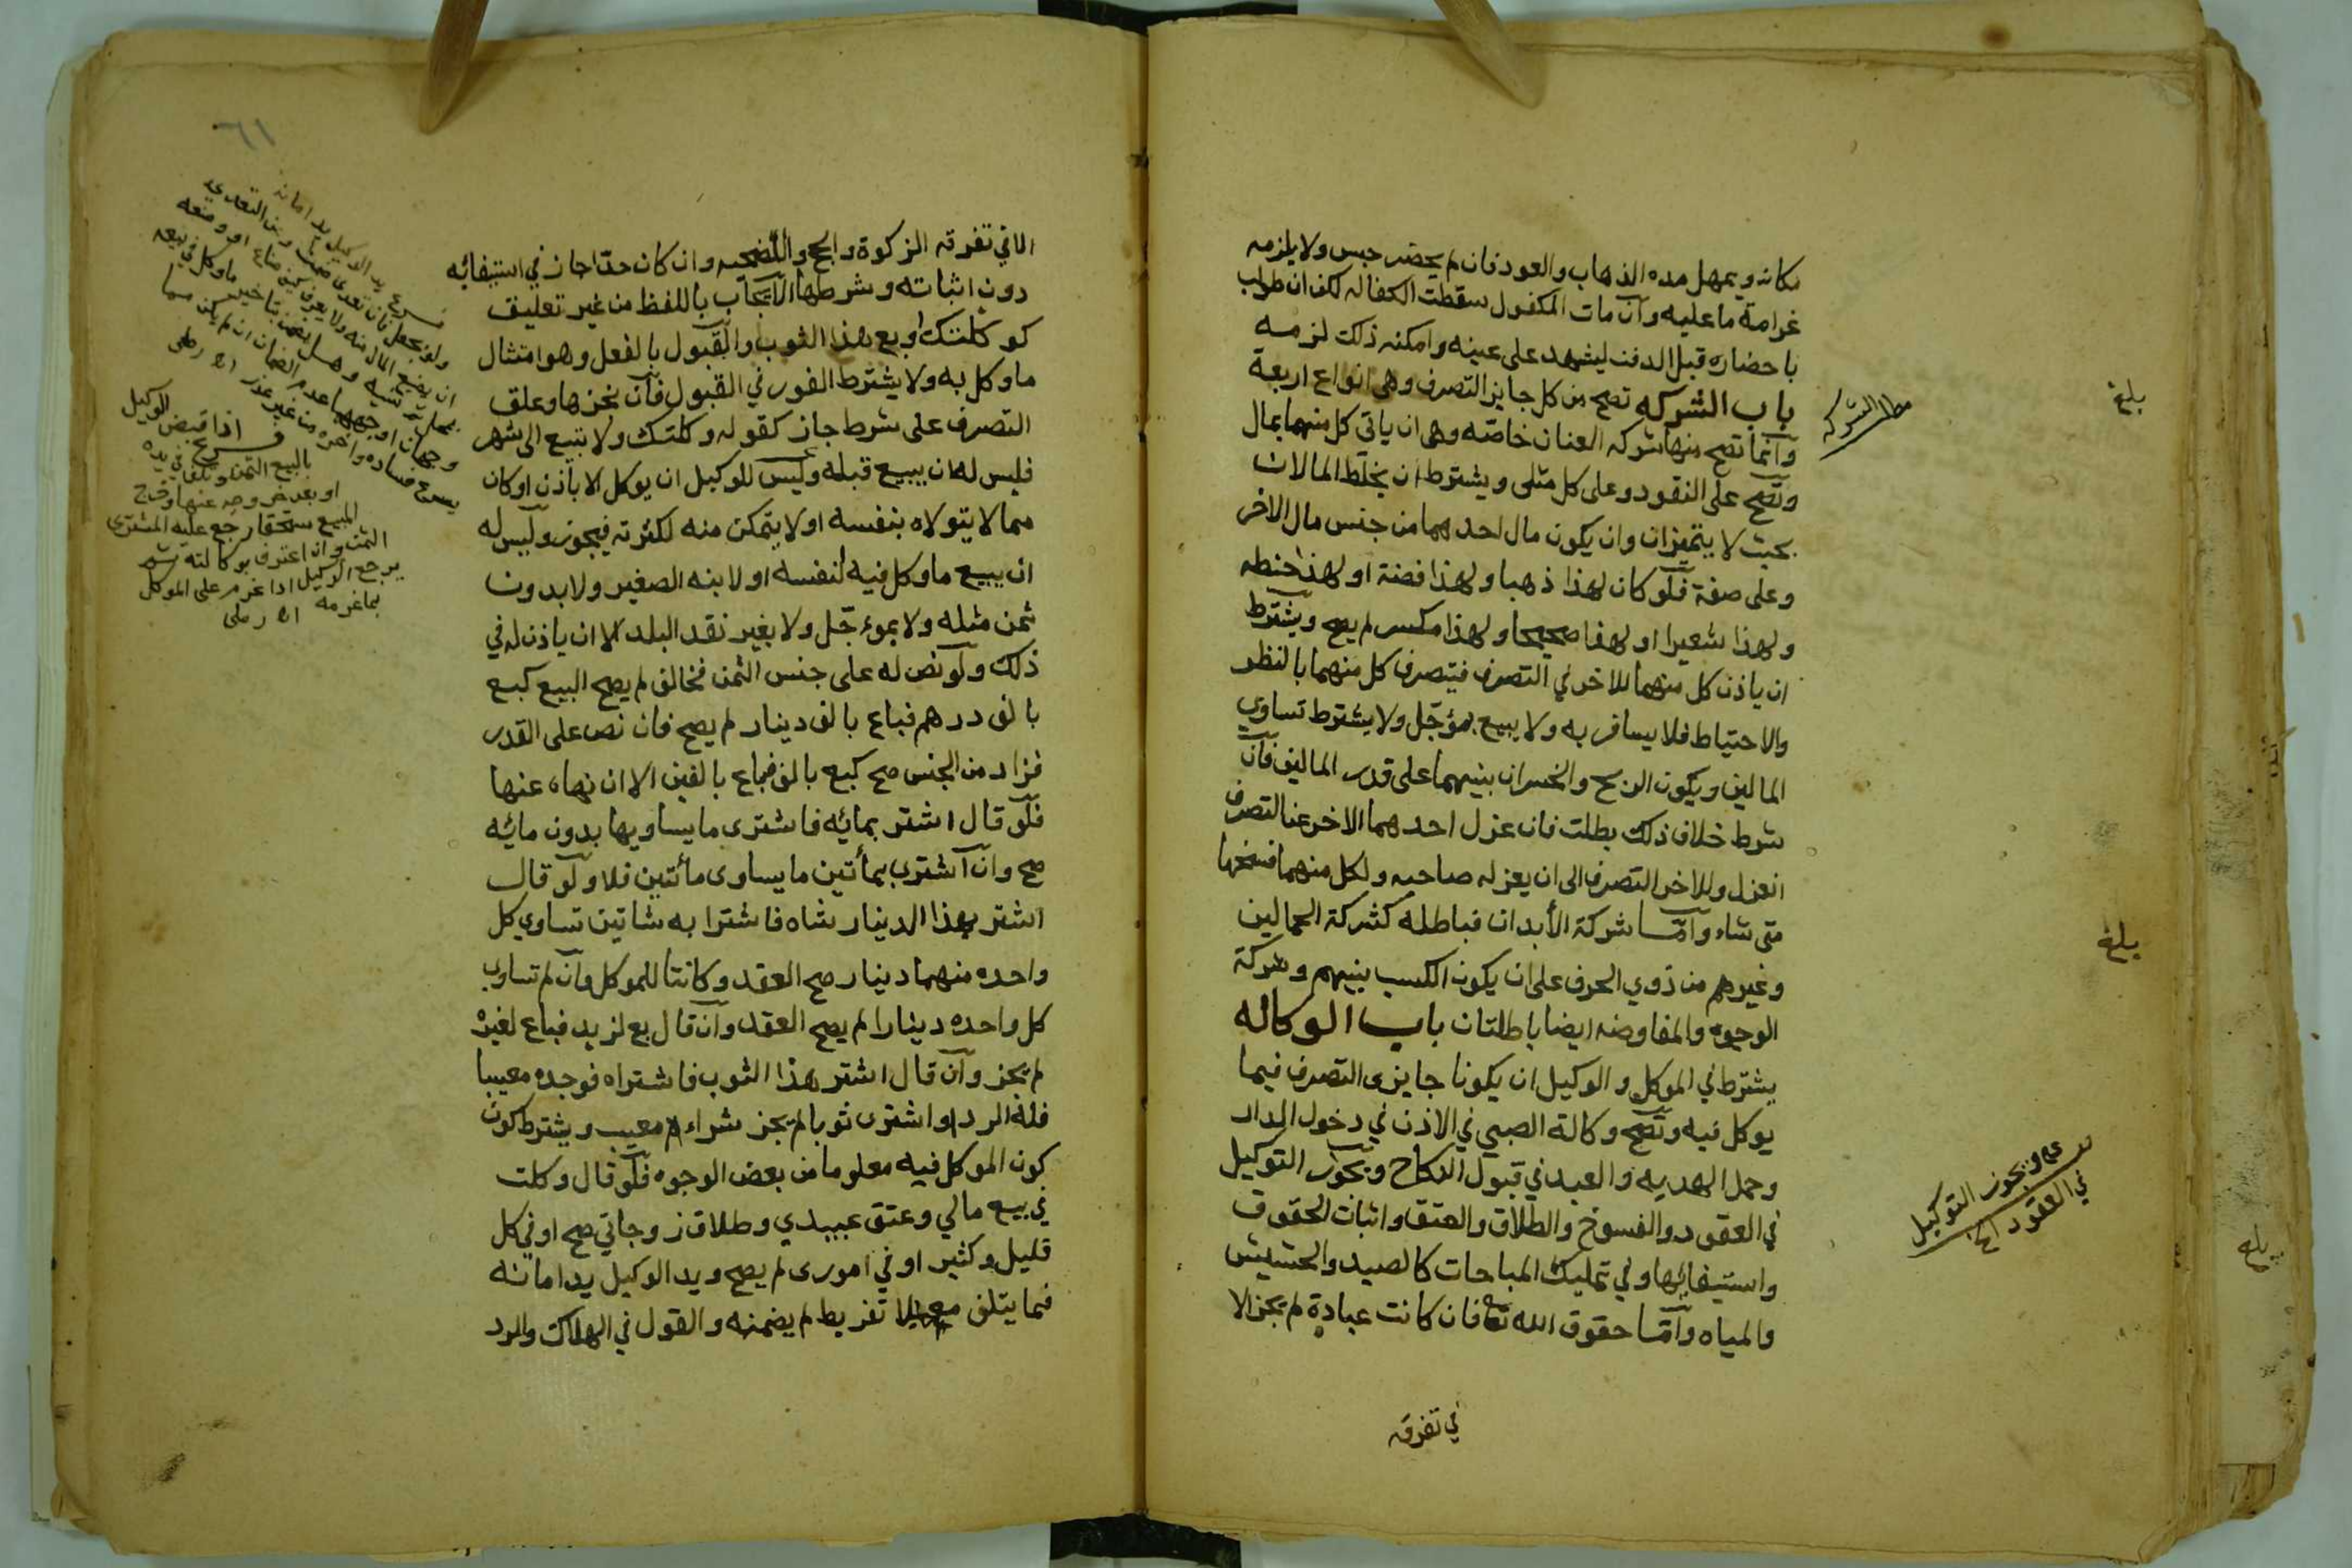 مكانه ويمهل مده الذهاب والعود فان لم يحضر حبس ولا يلزمه
غرامة ما عليه وان مات المكفول سقطت الكفاله لكن ان طولب
باحضاره قبل الدفن ليشهد على عينه وامكنه ذلك لزمه
باب الشركه تصح من كل جايز التصرف وهى انواع اربعة
وانما تصح منها شركه العنان خاصه وهى ان ياتى كل منهما بمال
وتصح على النقود وعلى كل مثلى ويشترط ان يخلط المالان
بحيث لا يتميزان وان يكون مال احدهما من جنس مال الاخر
وعلى صفة فلو كان لهذا ذهبا ولهذا فضة او لهذا حنطه
ولهذا شعيرا او لهذا صحيحا ولهذا مكسر لم يصح ويشترط
ان ياذن كل منهما للاخر في التصرف فيتصرف كل منهما بالنظر
والاحتياط فلا يسافر به ولا يبيع بمؤجّل ولا يشترط تساوي
المالين ويكون الربح والخسران بينهما على قدر المالين فان
شرط خلاف ذلك بطلت فان عزل احدهما الاخر عن التصرف
انعزل وللاخر التصرف الى ان يعزله صاحبه ولكل منهما فسخها
متى شاء وامّا شركة الأبدان فباطله كشركة الحمالين
وغيرهم من ذوي الحرف على ان يكون الكسب بينهم وشركة
الوجوه والمفاوضه ايضا باطلتان باب الوكاله
يشترط في الموكل والوكيل ان يكونا جايزى التصرف فيما
يوكل فيه وتصح وكالة الصبي في الاذن في دخول الدار
وحمل الهديه والعبد في قبول النكاح ويجوز التوكيل
في العقود والفسوخ والطلاق والعتق واثبات الحقوق
واستيفائها وفي تمليك المباحات كالصيد والحشيش
والمياه وامّا حقوق الله تعا فان كانت عبادة لم يجز الا
في تفرقه
مطلب الشركه
بلغ
بلغ
بلغ
ويجوز التوكيل
في العقود الخ
٦١
الا في تفرقه الزكوة والحج والأضحيه وان كان حدّا جاز في استيفائه
دون اثباته وشرطها الايجاب باللفظ من غير تعليق
كوكلتك او بع هذا الثوب والقبول بالفعل وهو امتثال
ما وكل به ولا يشترط الفور في القبول فان نجزها وعلق
التصرف على شرط جاز كقوله وكلتك ولا تبيع الى شهر
فليس له ان يبيع قبله وليس للوكيل ان يوكل الا باذن او كان
مما لا يتولاه بنفسه او لا يتمكن منه لكثرته فيجوز وليس له
ان يبيع ما وكل فيه لنفسه او لابنه الصغير ولا بدون
ثمن مثله ولا بموءجّل ولا بغير نقد البلد الا ان ياذن له في
ذلك ولو نص له على جنس الثمن فخالف لم يصح البيع كبع
بالف درهم فباع بالف دينار لم يصح فان نص على القدر
فزاد من الجنس صح كبع بالف فباع بالفين الا ان نهاه عنها
فلو قال اشتر بمائه فاشترى ما يساويها بدون مائه
صح وان اشترى بمأتين ما يساوى مأتين فلا ولو قال
اشتر بهذا الدينار شاه فاشترا به شاتين تساوي كل
واحده منهما دينار صح العقد وكانتا للموكل وان لم تساوي
كل واحده دينارا لم يصح العقد وان قال بع لزيد فباع لغيره
لم يجز وان قال اشتر هذا الثوب فاشتراه فوجده معيبا
فله الرد او اشترى ثوبا لم يجز شراء معيب ويشترط كون
كون الموكل فيه معلوما من بعض الوجوه فلو قال وكلت
في بيع مالي وعتق عبيدي وطلاق زوجاتي صح او في كل
قليل وكثير او في امورى لم يصح ويد الوكيل يد امانه
فما يتلف معه بلا تفريط لم يضمنه والقول في الهلاك والرد
فرع يد الوكيل يد امانه
ولو بجعل فان تعدى ضمن ومن التعدي
ان يضيع المال منه ولا يعرف كيف ضاع او وضعه
بمحل ثم نسيه وهل يضمن بتاخير ما وكل في بيعه
وجهان اوجههما عدم الضمان ان لم يكن مما
يسرع فساده واخره من غير عذر اه رملى
فرع اذا قبض الوكيل
بالبيع الثمن وتلف في يده
او بعد خروجه عنها وخرج
المبيع مستحقا رجع عليه المشترى
الثمن وان اعترف بوكالته ثم
يرجع الوكيل اذا غرم على الموكل
بما غرمه اه رملى